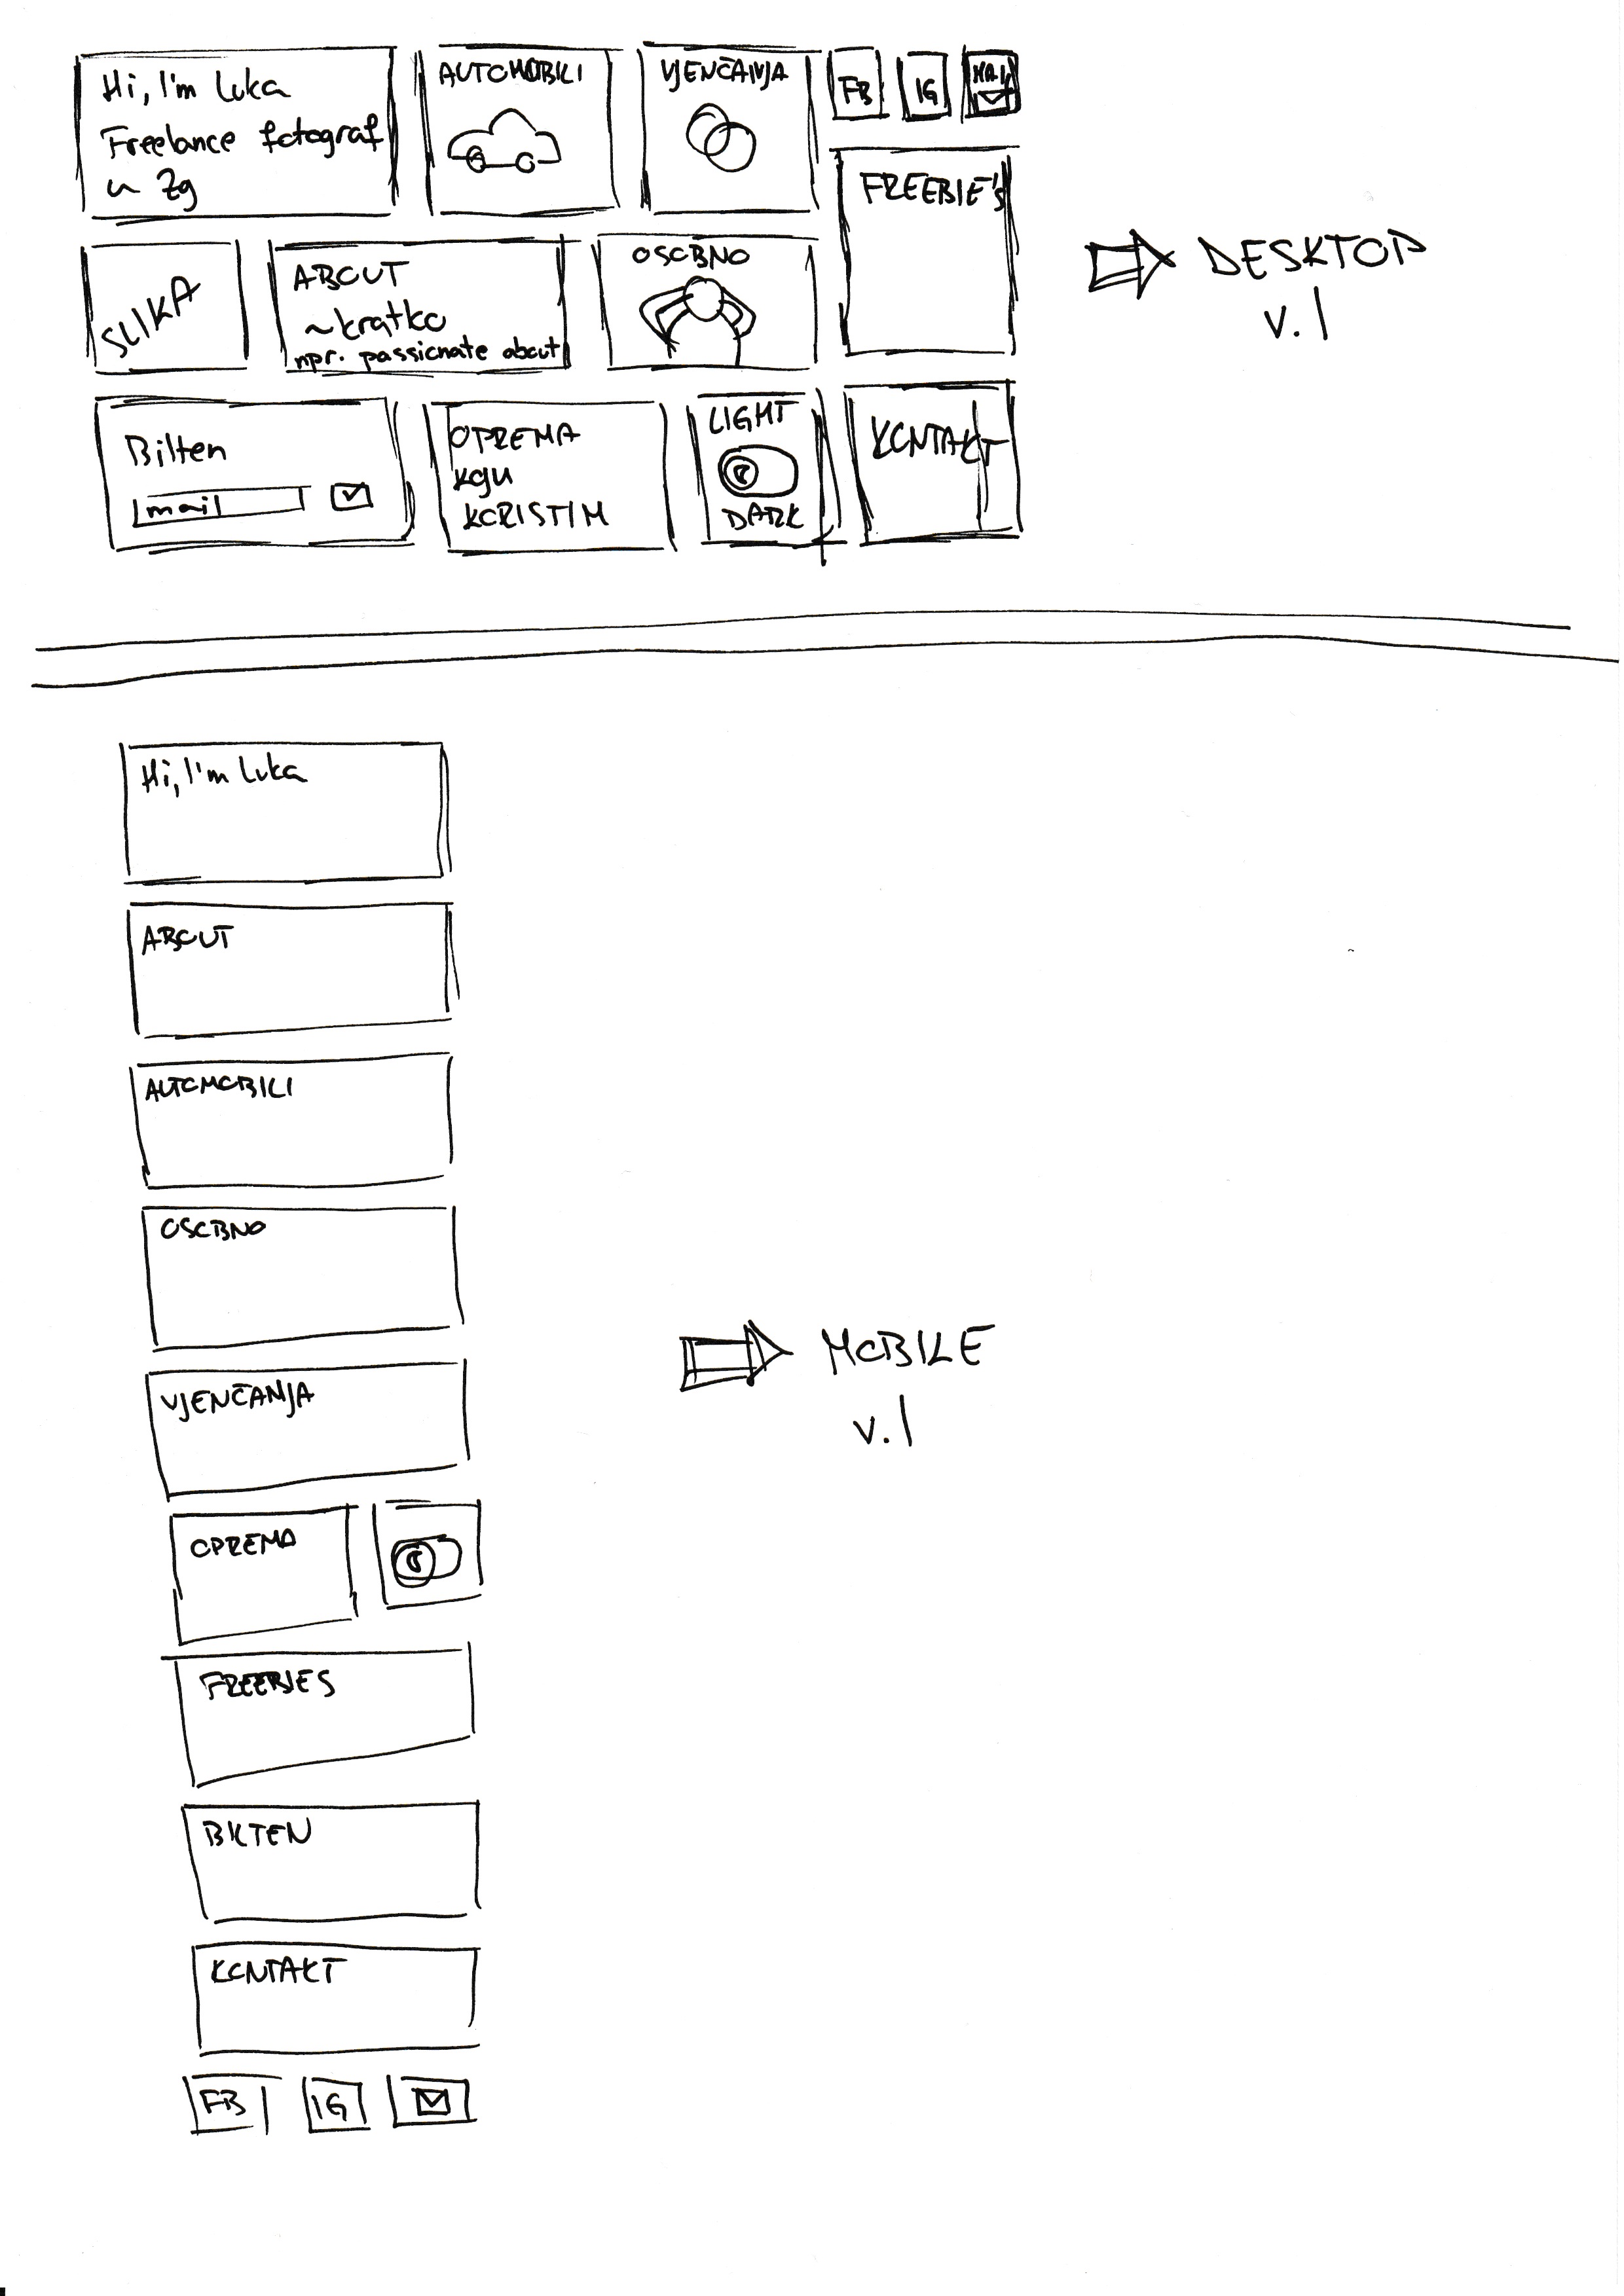 Hi, I'm Luka
Freelance fotograf
u Zg
AUTOMOBILI
VJENČANJA
FB
IG
MAIL
FREEBIE'S
SLIKA
ABOUT
~kratko
npr. passionate about
OSOBNO
Bilten
mail
OPREMA
KOJU
KORISTIM
LIGHT
DARK
KONTAKT
DESKTOP
v.1
Hi, I'm Luka
ABOUT
AUTOMOBILI
OSOBNO
VJENČANJA
OPREMA
FREEBIES
BILTEN
KONTAKT
FB
IG
MOBILE
v.1